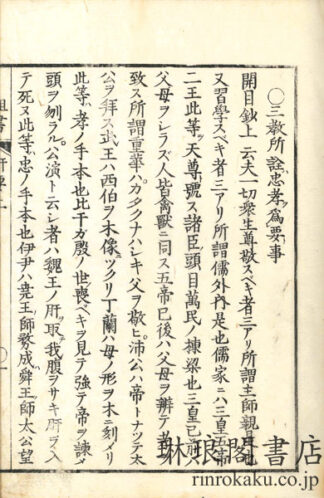 〇三敎所詮忠孝爲要事
開目鈔上云夫一切衆生尊敬スヘキ者三アリ所謂主師親是也
又習學スヘキ者三アリ所謂儒外內是也儒家ニハ三皇五帝
三王此等ヲ天尊ト號ス諸臣ノ頭目萬民ノ棟梁也三皇已前ハ
父母ヲシラズ人皆禽獸ニ同ス五帝已後ハ父母ヲ辨テ孝ヲ
致ス所謂重華ハカタクナハシキ父ヲ敬ヒ沛公ハ帝トナツテ太
公ヲ拜ス武王ハ西伯ヲ木像ニツクリ丁蘭ハ母ノ形ヲ木ニ刻メリ
此等ハ孝ノ手本也比干ガ殷ノ世喪ヘキヲ見テ強テ帝ヲ諫メ
頭ヲ刎ラル公演ト云シ者ハ魏王ノ肝ヲ取テ我腹ヲサキ肝ヲ入
テ死ス此等ハ忠ノ手本也伊尹ハ堯王ノ師務成ハ舜王ノ師太公望
琳琅閣書店
rinrokaku.co.jp